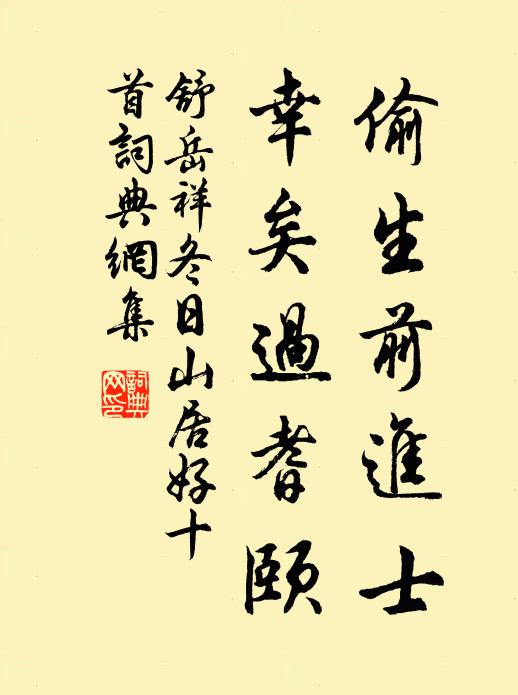 偷生前進士
幸矣過耆頤
舒岳祥冬日山居好十
首詞典網集
詞典
网印